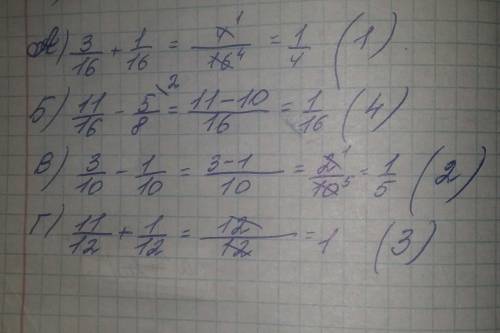 А) 3/16 + 1/16 = 4¹/16⁴ = 1/4 (1)
Б) 11/16 - 5/8\² = 11-10/16 = 1/16 (4)
В) 3/10 - 1/10 = 3-1/10 = 2¹/10⁵ = 1/5 (2)
Г) 11/12 + 1/12 = 12/12 = 1 (3)